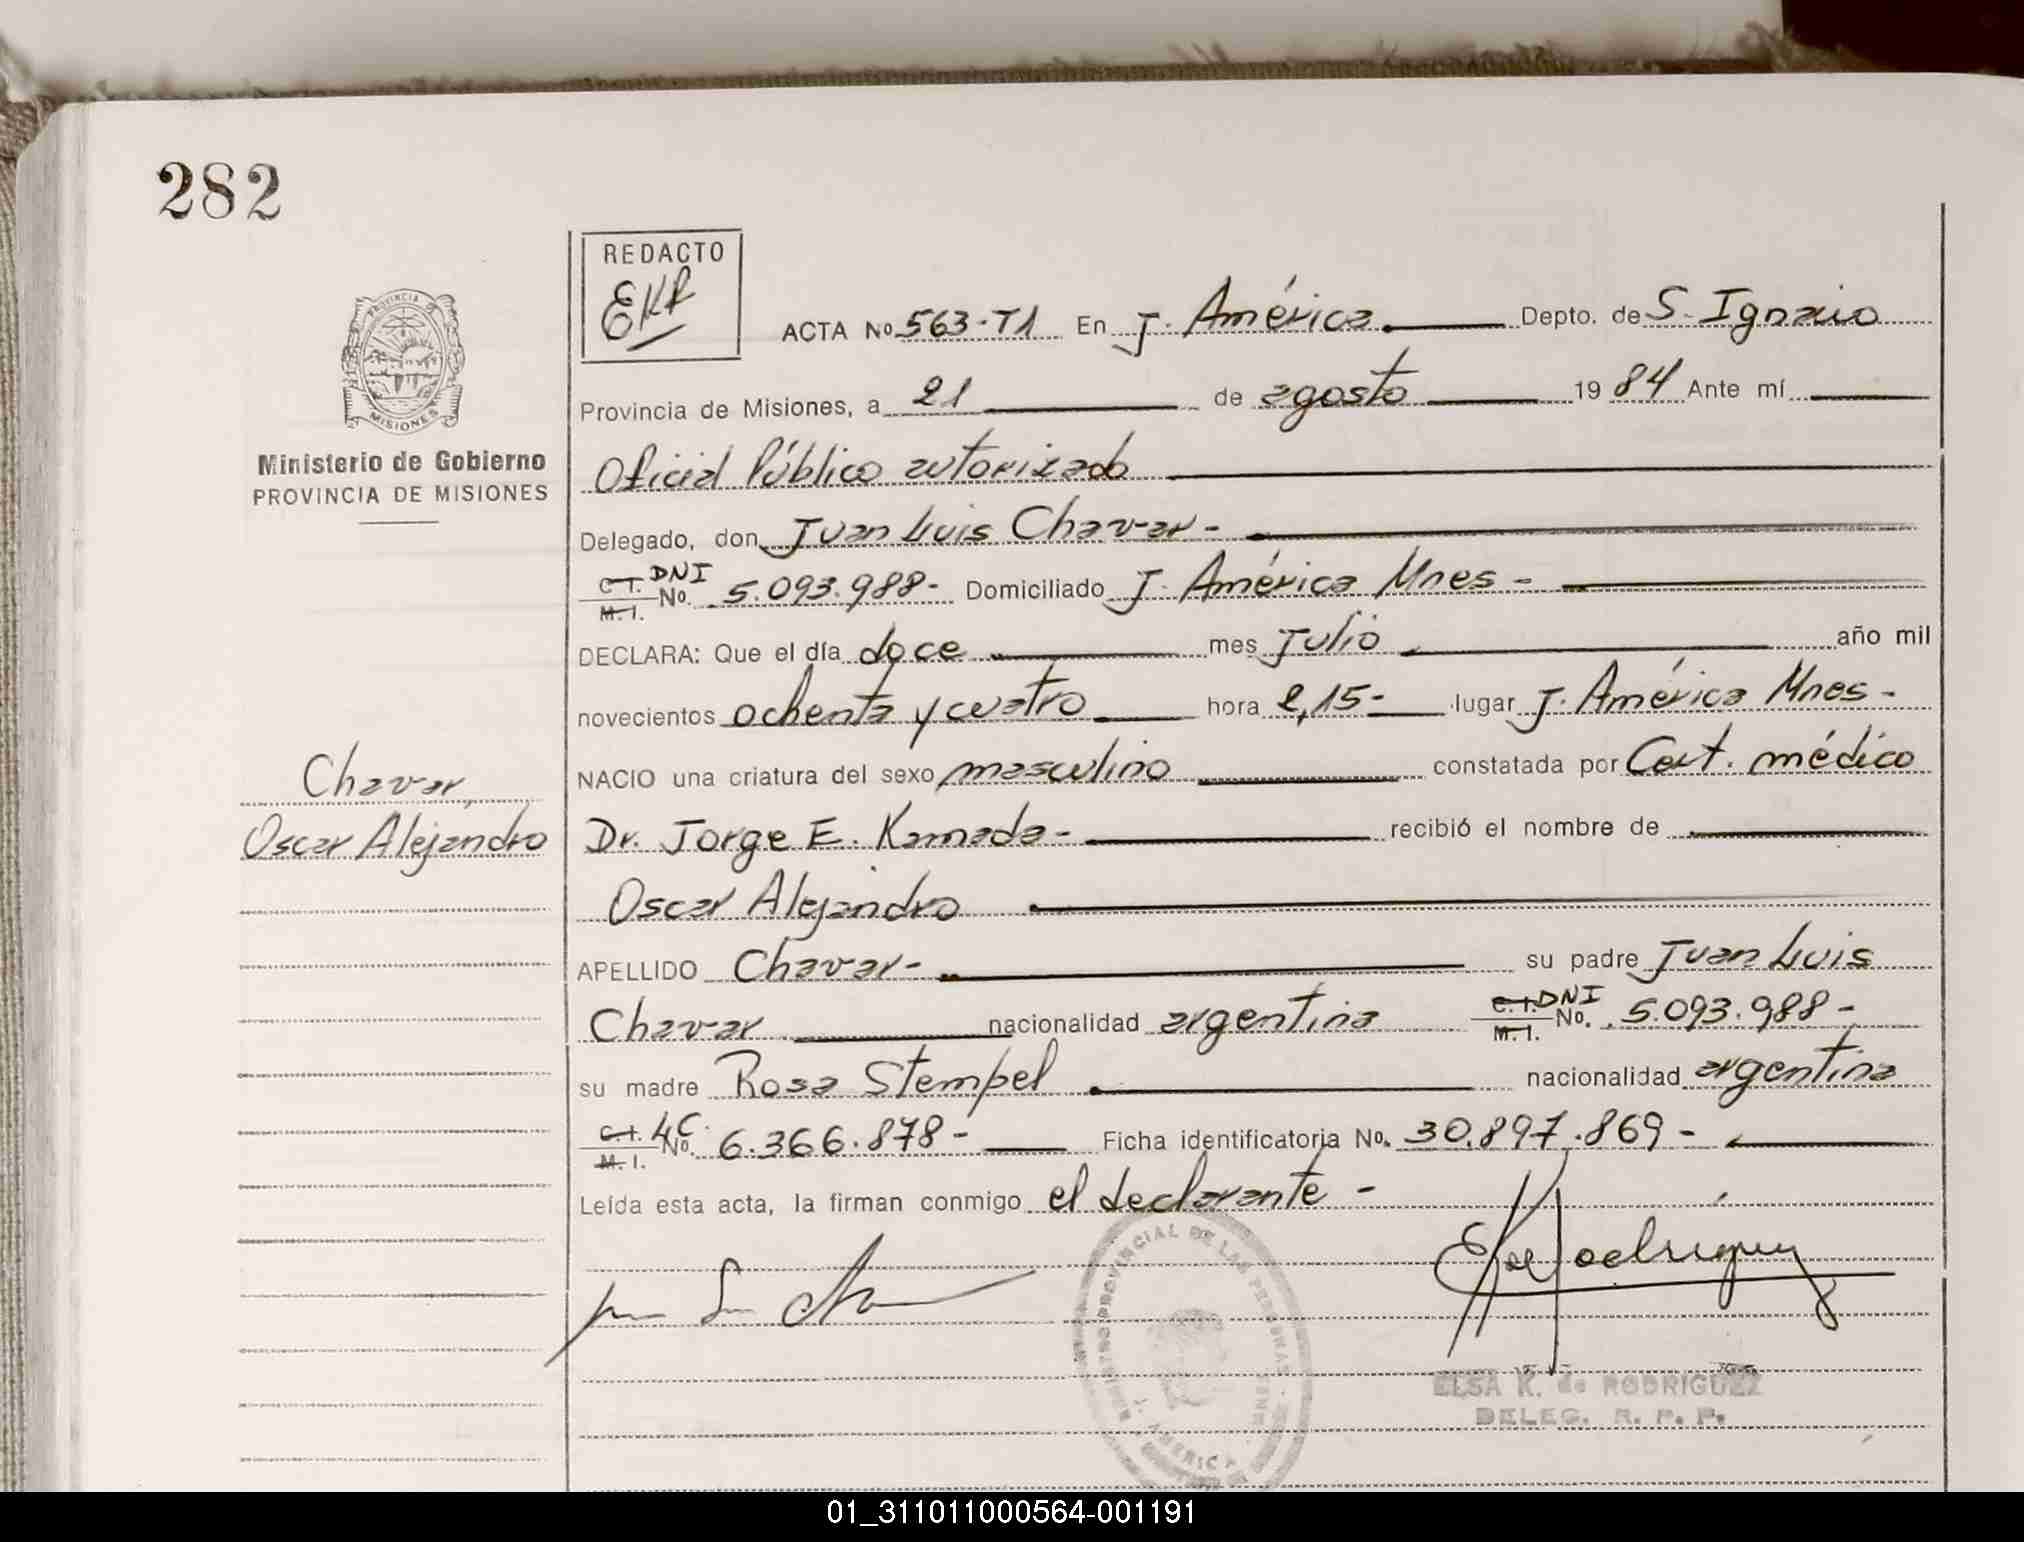 282
REDACTO
EKR
PROVINCIA DE
MISIONES
Ministerio de Gobierno
PROVINCIA DE MISIONES
ACTA No. 563-T1 En J. América Depto. de S. Ignacio
Provincia de Misiones, a 21 de agosto 1984 Ante mí
Oficial Público autorizado
Delegado, don Juan Luis Chavar-
C.I. M.I. DNI No. 5.093.988- Domiciliado J. América Mnes-
DECLARA: Que el día doce mes julio año mil
novecientos ochenta y cuatro hora 2,15- lugar J. América Mnes-
NACIO una criatura del sexo masculino constatada por Cert. médico
Chavar,
Oscar Alejandro
Dr. Jorge E. Kamada- recibió el nombre de
Oscar Alejandro
APELLIDO Chavar- su padre Juan Luis
Chavar nacionalidad argentina C.I. M.I. DNI No. 5.093.988-
su madre Rosa Stempel nacionalidad argentina
C.I. M.I. LC No. 6.366.878- Ficha identificatoria No. 30.897.869-
Leída esta acta, la firman conmigo el declarante-
E K de Rodriguez
REGISTRO PROVINCIAL DE LAS PERSONAS
J. AMERICA
ELSA K. de RODRIGUEZ
DELEG. R. P. P.
01_311011000564-001191